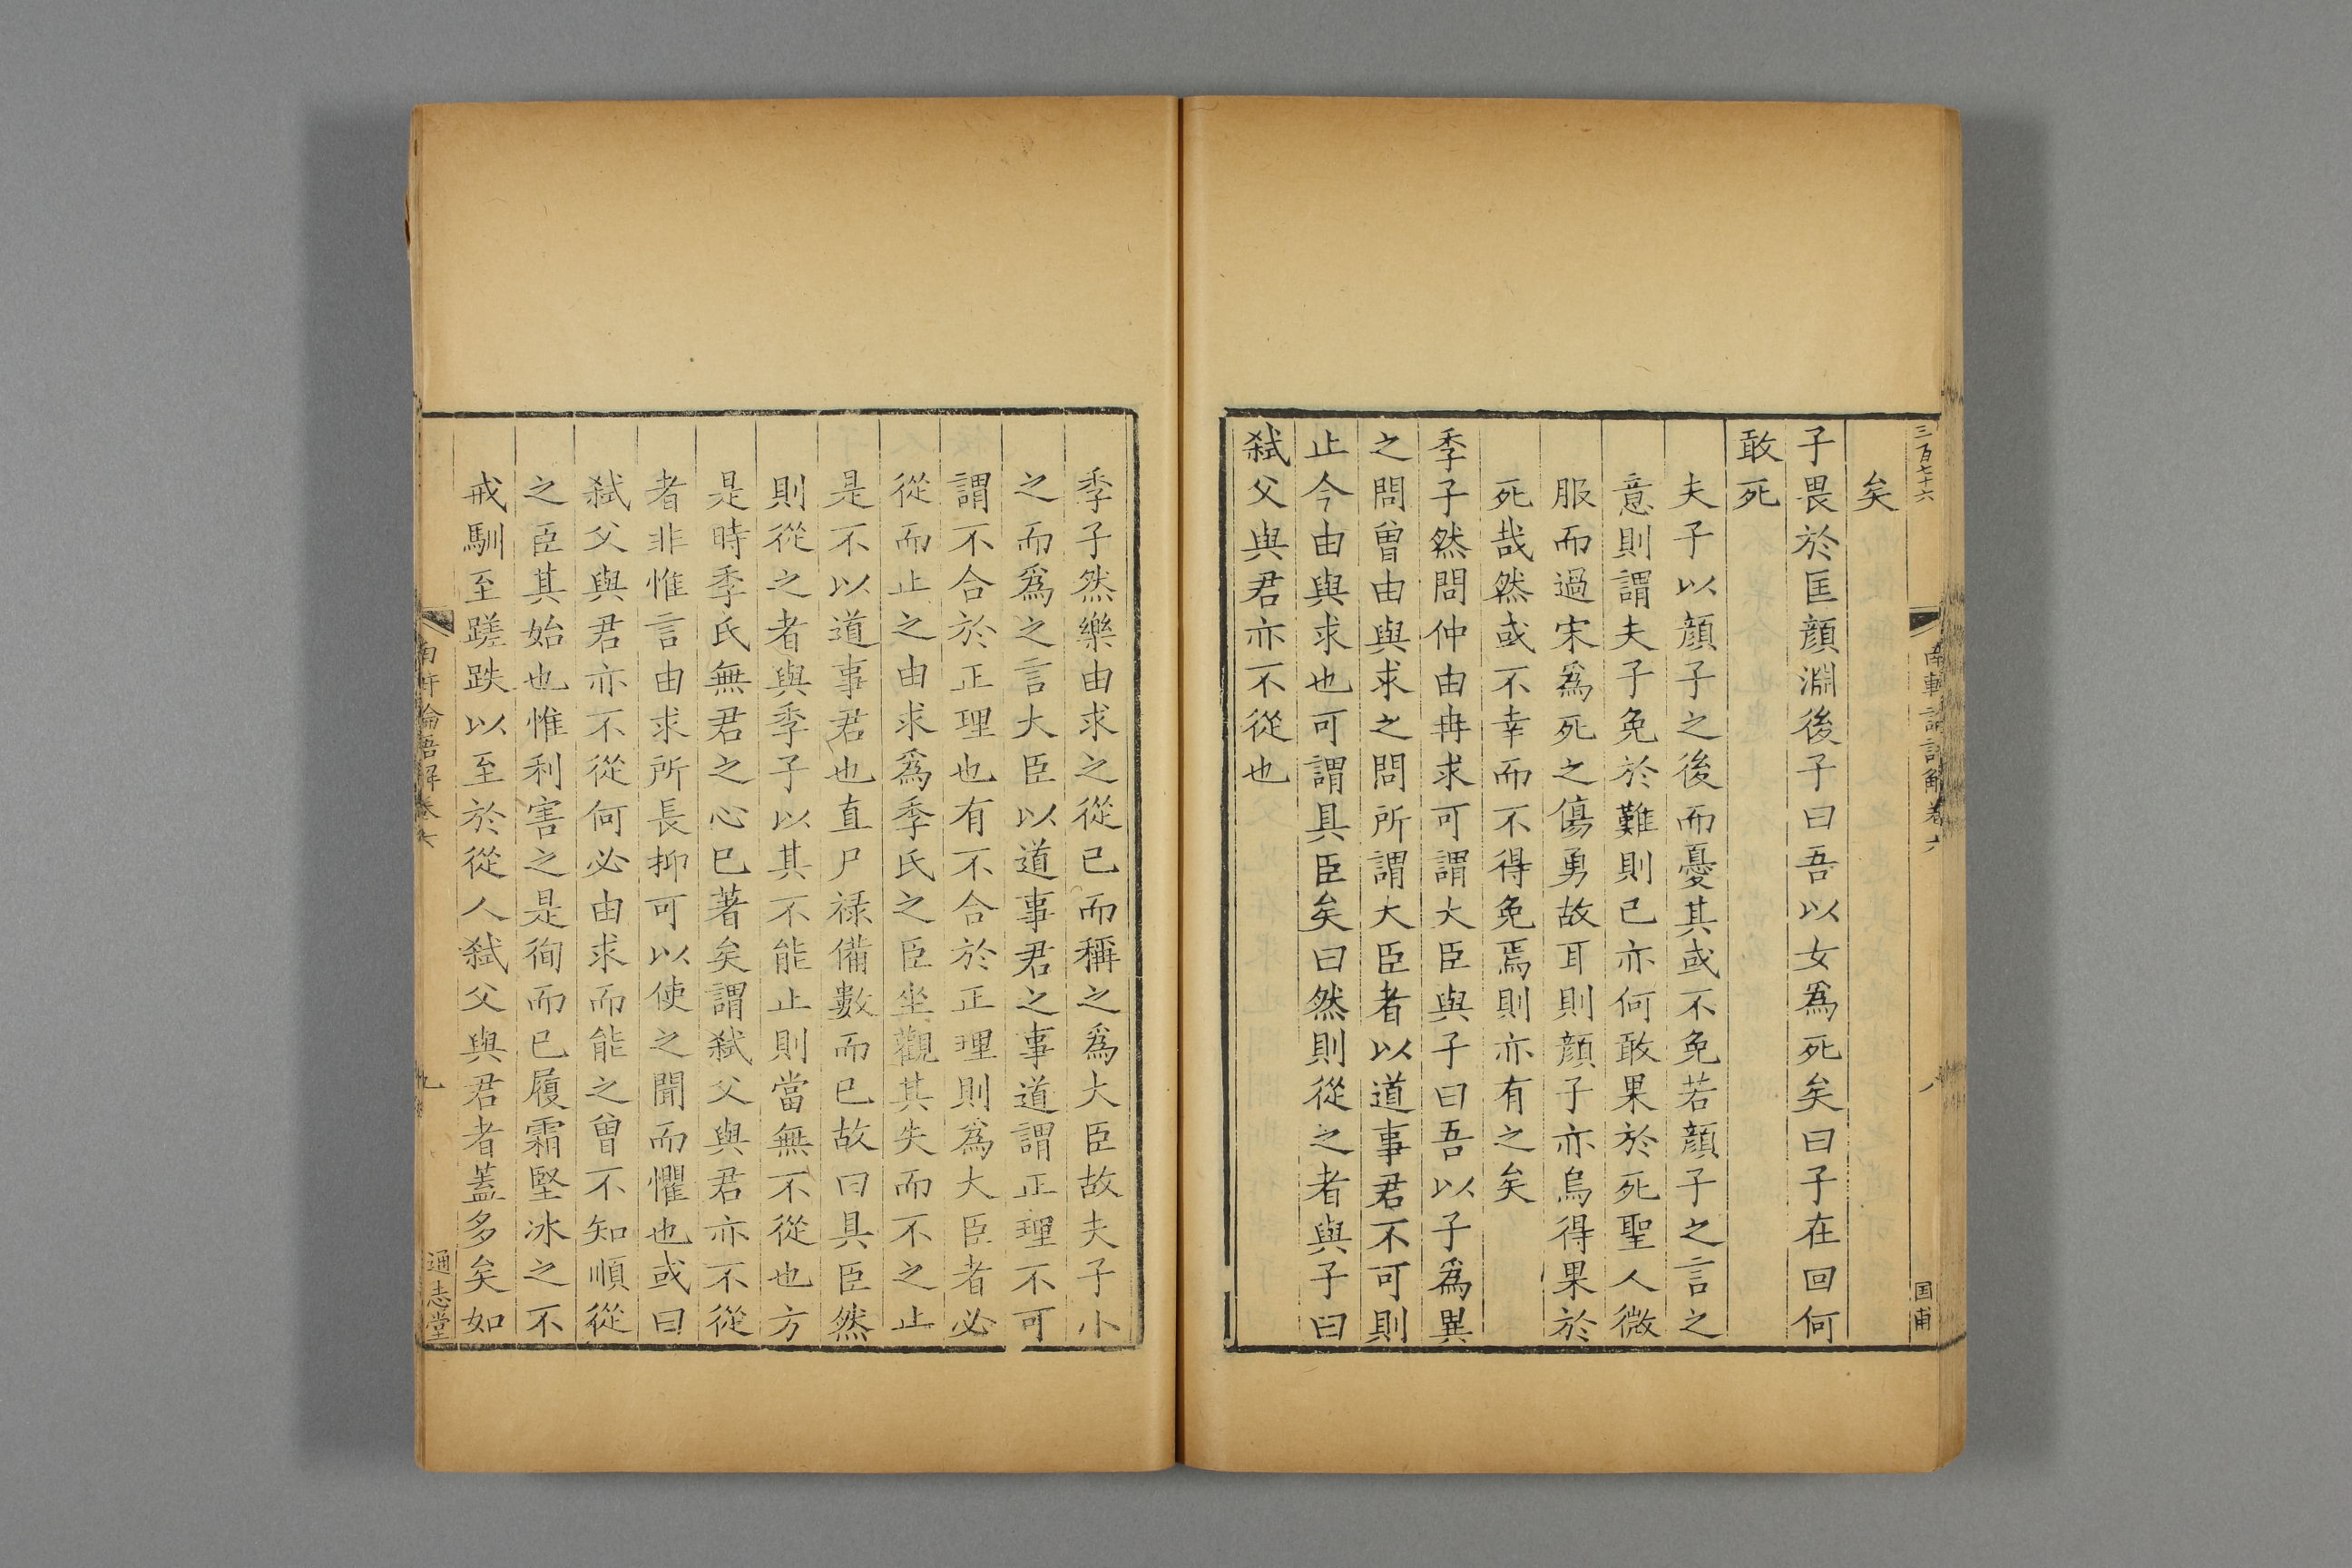 三百七十六
矣
子畏於匡顏淵後子曰吾以女為死矣曰子在回何
敢死
夫子以顏子之後而憂其或不免若顏子之言之
意則謂夫子免於難則已亦何敢果於死聖人微
服而過宋為死之傷勇故耳則顏子亦烏得果於
死哉然或不幸而不得免焉則亦有之矣
季子然問仲由冉求可謂大臣與子曰吾以子為異
之問曾由與求之問所謂大臣者以道事君不可則
止今由與求也可謂具臣矣曰然則從之者與子曰
弒父與君亦不從也
國甫
季子然樂由求之從已而稱之為大臣故夫子小
之而為之言大臣以道事君之事道謂正理不可
謂不合於正理也有不合於正理則為大臣者必
從而止之由求為季氏之臣坐觀其失而不之止
是不以道事君也直尸祿備數而已故曰具臣然
則從之者與季子以其不能止則當無不從也方
是時季氏無君之心已著矣謂弒父與君亦不從
者非惟言由求所長抑可以使之聞而懼也或曰
弒父與君亦不從何必由求而能之曾不知順從
之臣其始也惟利害之是徇而已履霜堅冰之不
戒馴至蹉跌以至於從人弒父與君者蓋多矣如
通志堂